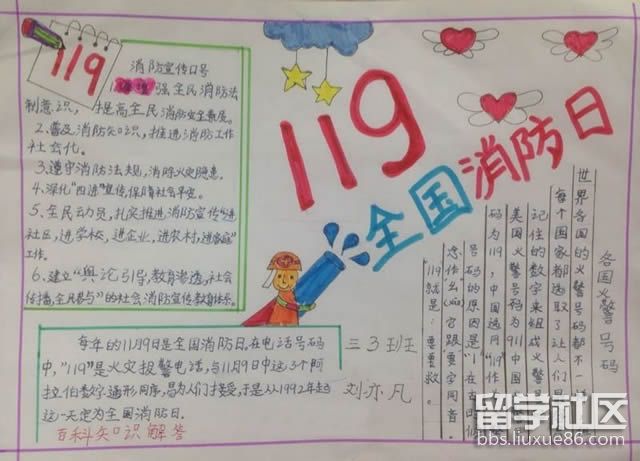 119
消防宣传口号
1.增强全民消防法
制意识，提高全民消防安全素质。
2.普及消防知识，推进消防工作
社会化。
3.遵守消防法规，消除火灾隐患。
4.深化"四进"宣传，保障社会平安。
5、全民动员，扎实推进消防宣传"进
社区，进学校，进企业，进农村，进家庭"
工作。
6.建立"舆论引导，教育渗透，社会
传播，全民参与"的社会消防宣传教育体系。
119
全国消防日
各国火警号码
世界各国的火警号码都不一样
每个国家都选取了让人们最
记住的数字来组成火警
美国火警号码为911中国
码为119，中国选网"119"作
号码的原因是"1"在古时候
念作幺(yāo)宫跟"要"字同音。
119就是：要要救。
每年的11月9日是全国消防日。在电话号码
中，"119"是火灾报警电话，与11月9日中这3个阿
拉伯数字通形同序，易为人们接受，于是从1992年起
这一天定为全国消防日。
百科知识解答
三3班
刘亦凡
留学社区
bbs.liuxue86.com